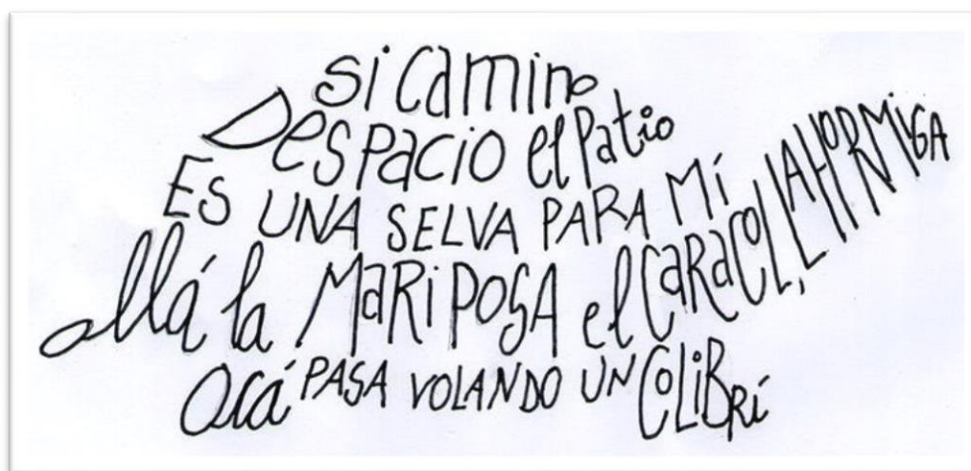 si camino
Despacio el Patio
ES UNA SELVA PARA Mí
allá la MaRiPOSA el CaRaCOL, LA HORMIGA
acá PASA VOLANDO UN COLiBRí